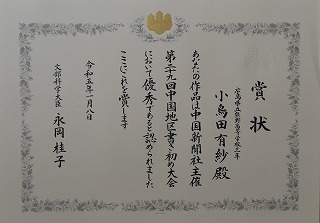 賞状
広島県立熊野高等学校二年
小鳥田有紗殿
あなたの作品は中国新聞社主催
第二十九回中国地区書き初め大会
において優秀であると認められました
ここにこれを賞します
令和五年一月八日
文部科学大臣 永岡桂子